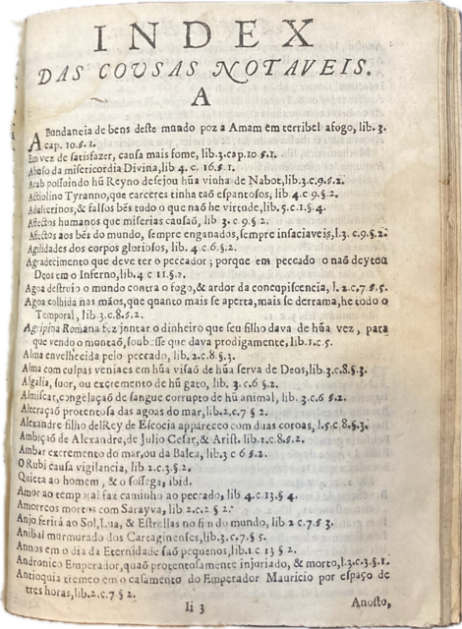 INDEX
DAS COUSAS NOTAVEIS.
A
Abundancia de bens deste mundo poz a Amam em terribel afogo, lib. 3.
cap. 10. §. 1.
Em vez de satisfazer, causa mais fome, lib. 3. cap. 10 §. 1.
Abuso da misericordia Divina, lib 4. c. 16. §. 1.
Acab possuindo hũ Reyno desejou hũa vinha de Nabot, lib. 3. c. 9. §. 2.
Acciolino Tyranno, que carceres tinha taõ espantosos, lib 4. c 9. §. 2.
Adulterinos, & falsos bẽs tudo o que naõ he virtude, lib. 5. c. 1. §. 4.
Affectos humanos que miserias causaõ, lib 3. c 9. §. 2.
Affectos aos bẽs do mundo, sempre enganados, sempre insaciaveis, l. 3. c. 9. §. 2.
Agilidades dos corpos gloriosos, lib. 4 c. 6. §. 2.
Agradecimento que deve ter o peccador; porque em peccado o naõ deytou
Deos em o Inferno, lib. 4 c 11. §.
Agoa destroio o mundo contra o fogo, & ardor da concupiscencia, l. 2. c. 7 §. 5.
Agoa colhida nas mãos, que quanto mais se aperta, mais se derrama, he todo o
Temporal, lib 3. c. 8. §. 2.
Agripina Romana fez juntar o dinheiro que seu filho dava de hũa vez, para
que vendo o montaõ, soubesse que dava prodigamente, lib. 1. c. 5.
Alma envelhecida pelo peccado, lib. 2. c. 8. §. 3.
Alma com culpas veniaes em hũa visaõ de hũa serva de Deos, lib. 3. c. 8. §. 3.
Algalia, suor, ou excremento de hũ gato, lib. 3. c. 6 §. 2.
Almiscar, congelaçaõ de sangue corrupto de hũ animal, lib. 3. c. 6 §. 2.
Alteraçaõ protentosa das agoas do mar, lib. 2. c. 7 §. 2.
Alexandre filho delRey de Escocia appareceo com duas coroas, l. 5. c. 8. §. 3.
Ambiçaõ de Alexandre, de Julio Cesar, & Arist. lib. 1. c. 8. §. 2.
Ambar excremento do mar, ou da Balea, lib. 3 c 6 §. 2.
O Rubi causa vigilancia, lib 2. c. 3. §. 2.
Quieta ao homem, & o sossega, ibid.
Amor ao temporal faz caminho ao peccado, lib 4. c. 13. §. 4.
Amorreos mortos com Sarayva, lib 2. c. 2 §. 2.
Anjo ferirá ao Sol, Lua, & Estrellas no fim do mundo, lib 2 c. 7. § 3.
Anibal murmurado dos Cartaginenses, lib. 3. c. 7. § 5.
Annos em o dia da Eternidade saõ pequenos, lib. 1 c 13 § 2.
Andronico Emperador, quaõ protentosamente injuriado, & morto, l. 3. c. 3. §. 1.
Antioquia tremeo em o casamento do Emperador Mauricio por espaço de
tres horas, lib. 2. c. 7 § 2.
Ii 3
Anosto,